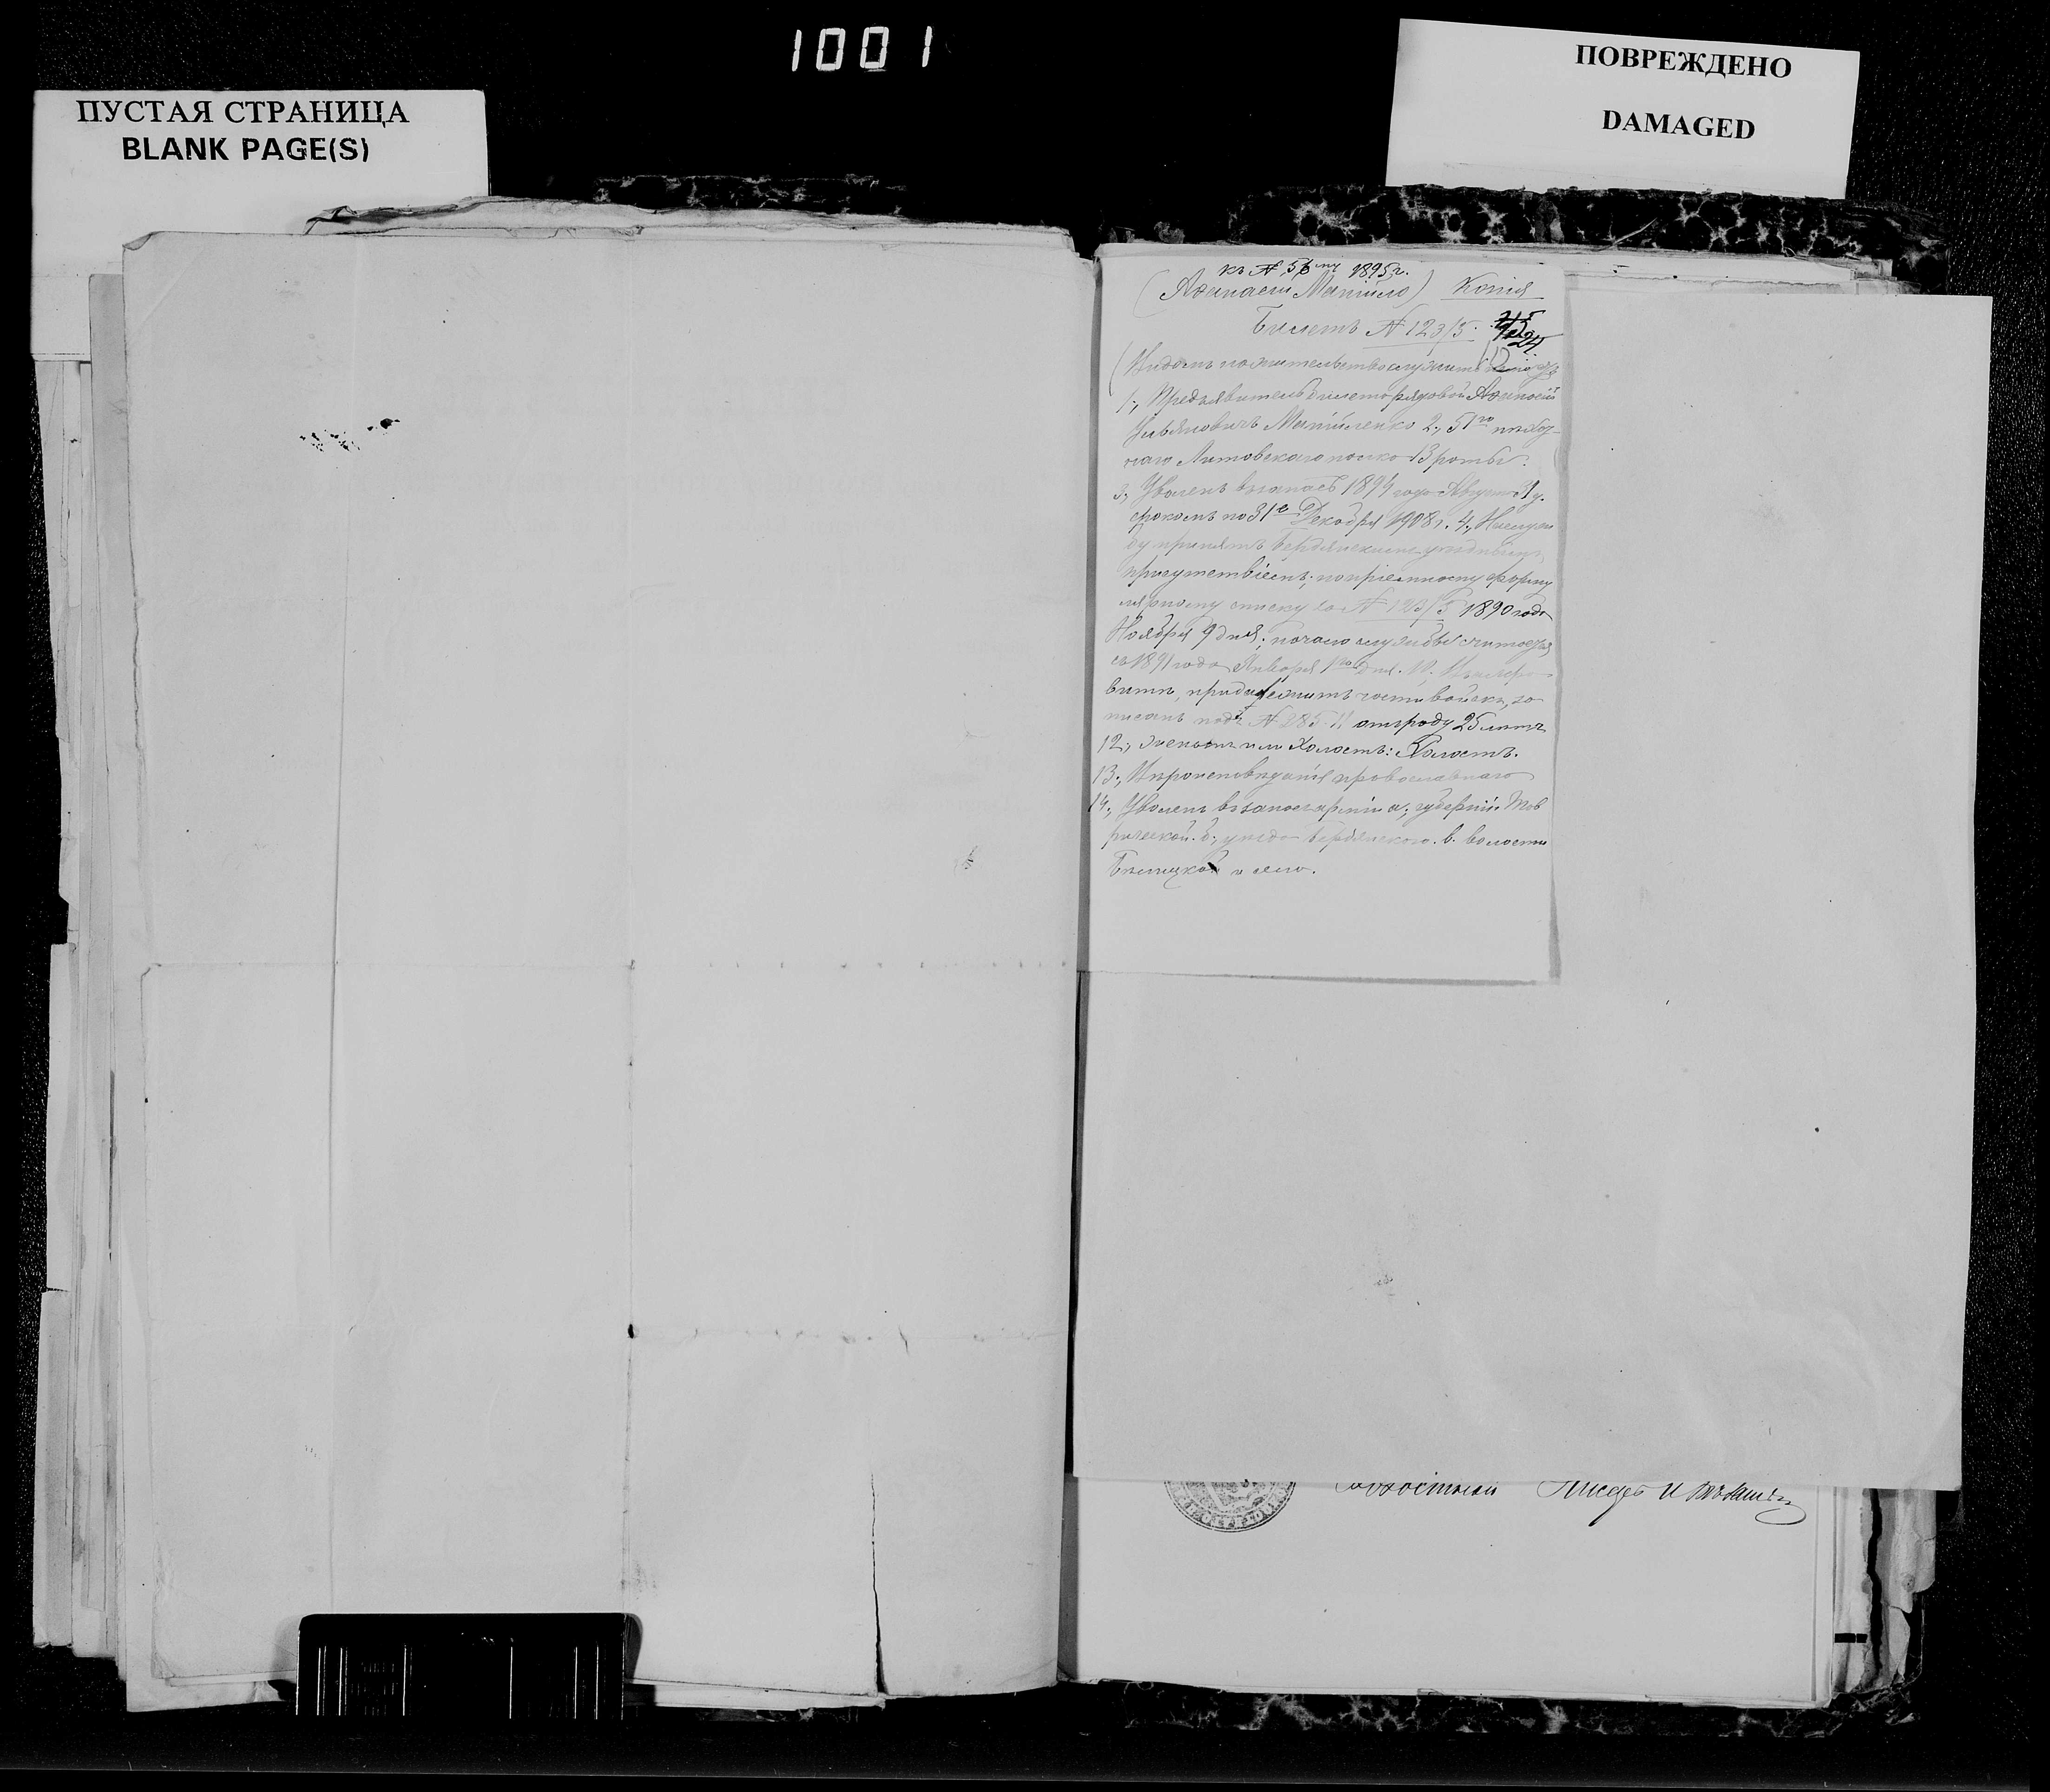 1001
ПУСТАЯ СТРАНИЦА
BLANK PAGE(S)
ПОВРЕЖДЕНО
DAMAGED
къ № 56му 1895 г.
(Афанасiй Матiйло) Копiя
Билетъ № 123/5.
(Видомъ на жительство служить
1., Предъявитель билета рядовой Афанасiй
Ульяновичъ Матiйленко 2., 51го пѣхот-
наго Литовскаго полка 13 роты.
3., Уволенъ въ запасъ 1894 года Августа 31 д.
срокомъ по 31е Декабря 1908 г. 4.,
принятъ Бердянскимъ уѣзднымъ
присутствiемъ; по прiемному форму
лярному списку за № 123/5 1890 года
Ноября 9 дня; начало службы считается
съ 1891 года Января 1го дня.
части войскъ, за
писанъ подъ № 285. 11 отъ роду 25 лѣтъ
12., женатъ или холостъ: Холостъ.
13., Вѣроисповѣданiя православнаго
14., Уволенъ въ запасъ армiи а., губернiи Тав
рической. б., уѣзда Бердянскаго. в. волости
и село.
Волостной Писарь